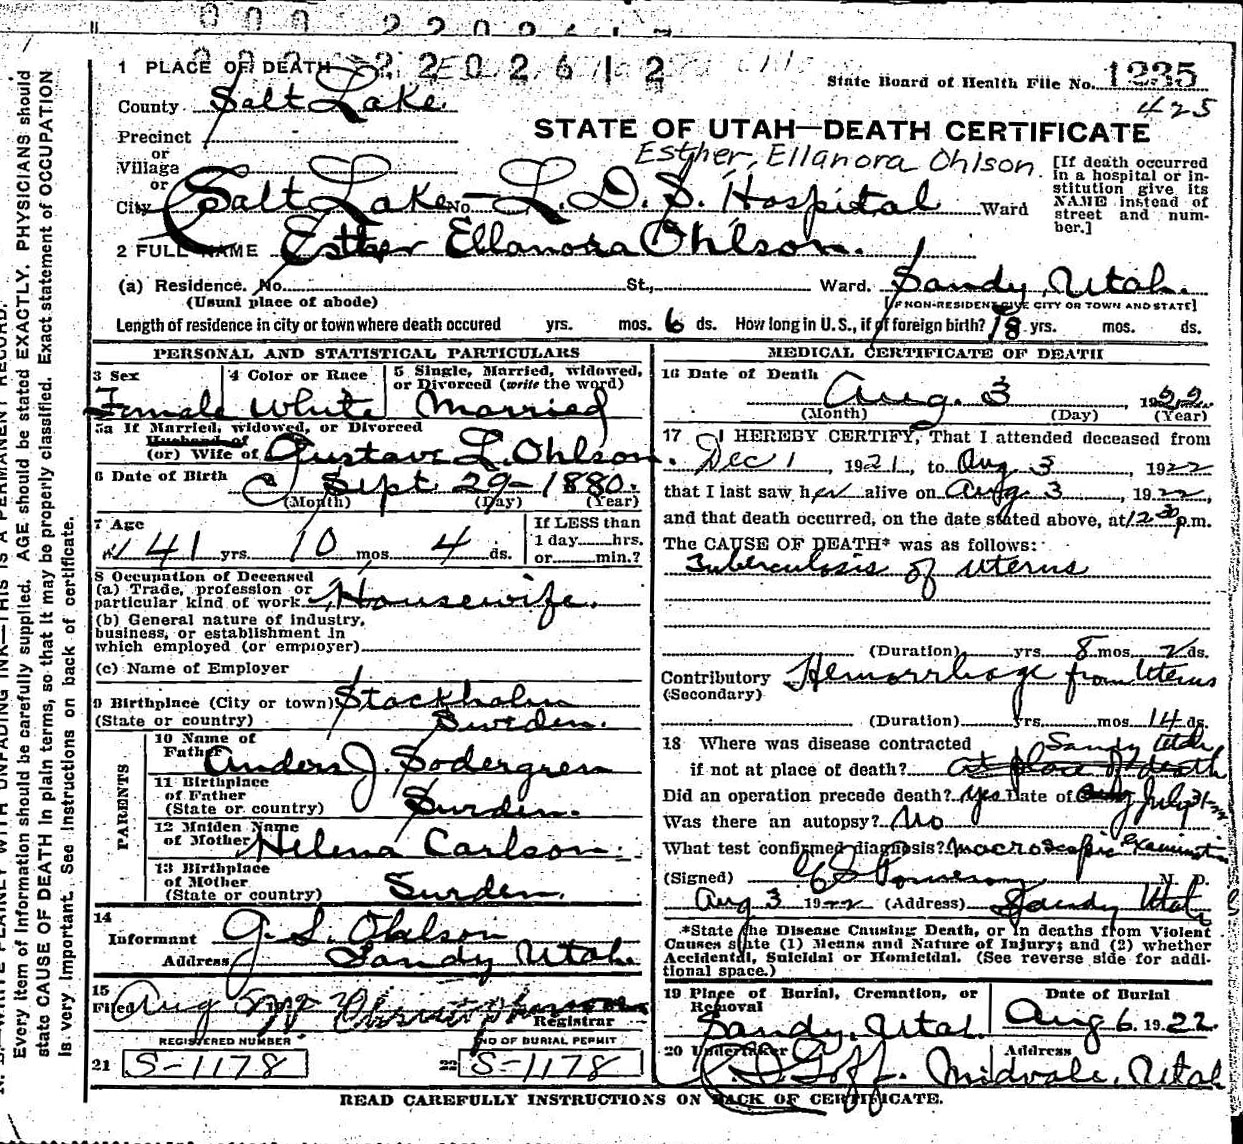 2202612
1 PLACE OF DEATH 2202612
State Board of Health File No. 1235
425
County Salt Lake
Precinct
or
Village
or
STATE OF UTAH—DEATH CERTIFICATE
Esther Ellanora Ohlson
City Salt Lake No. L. D. S. Hospital Ward
[If death occurred in a hospital or institution give its NAME instead of street and number.]
2 FULL NAME Esther Ellanora Ohlson.
(a) Residence. No. St., Ward. Sandy, Utah.
(Usual place of abode) [IF NON-RESIDENT GIVE CITY OR TOWN AND STATE]
Length of residence in city or town where death occured yrs. mos. 6 ds. How long in U.S., if of foreign birth? 18 yrs. mos. ds.
PERSONAL AND STATISTICAL PARTICULARS
3 Sex 4 Color or Race 5 Single, Married, widowed, or Divorced (write the word)
Female White Married
5a If Married, widowed, or Divorced
Husband of
(or) Wife of Gustave L. Ohlson.
6 Date of Birth Sept 29-1880.
(Month) (Day) (Year)
7 Age If LESS than
41 yrs. 10 mos. 4 ds. 1 day hrs. or min.?
8 Occupation of Deceased
(a) Trade, profession or particular kind of work Housewife.
(b) General nature of industry, business, or establishment in which employed (or employer)
(c) Name of Employer
9 Birthplace (City or town) Stockholm
(State or country) Sweden.
PARENTS
10 Name of Father Anders J. Sodergren
11 Birthplace of Father (State or country) Sweden.
12 Maiden Name of Mother Helena Carlson.
13 Birthplace of Mother (State or country) Sweden.
14
Informant G. L. Ohlson
Address Sandy Utah.
15
Filed Aug 5
Registrar
REGISTERED NUMBER NO OF BURIAL PERMIT
21 S-1178 22 S-1178
MEDICAL CERTIFICATE OF DEATH
16 Date of Death Aug. 3 1922
(Month) (Day) (Year)
17 I HEREBY CERTIFY, That I attended deceased from
Dec 1, 1921, to Aug 3, 1922
that I last saw her alive on Aug 3, 1922,
and that death occurred, on the date stated above, at 12 30 p.m.
The CAUSE OF DEATH* was as follows:
Tuberculosis of uterus
(Duration) yrs. 8 mos. 2 ds.
Contributory Hemorrhage from Uterus
(Secondary)
(Duration) yrs. mos. 14 ds.
18 Where was disease contracted Sandy Utah
if not at place of death? at place of death
Did an operation precede death? yes Date of July 31-22
Was there an autopsy? No
What test confirmed diagnosis? Macroscopic Examination
(Signed) M. D.
Aug 3 1922 (Address) Sandy Utah
*State the Disease Causing Death, or in deaths from Violent Causes state (1) Means and Nature of Injury; and (2) whether Accidental, Suicidal or Homicidal. (See reverse side for additional space.)
19 Place of Burial, Cremation, or Removal Date of Burial
Sandy, Utah. Aug 6. 1922.
20 Undertaker Address
Goff. Midvale, Utah
READ CAREFULLY INSTRUCTIONS ON BACK OF CERTIFICATE.
N. B.—WRITE PLAINLY WITH UNFADING INK—THIS IS A PERMANENT RECORD.
Every item of information should be carefully supplied. AGE should be stated EXACTLY. PHYSICIANS should
state CAUSE OF DEATH in plain terms, so that it may be properly classified. Exact statement of OCCUPATION
is very important. See instructions on back of certificate.